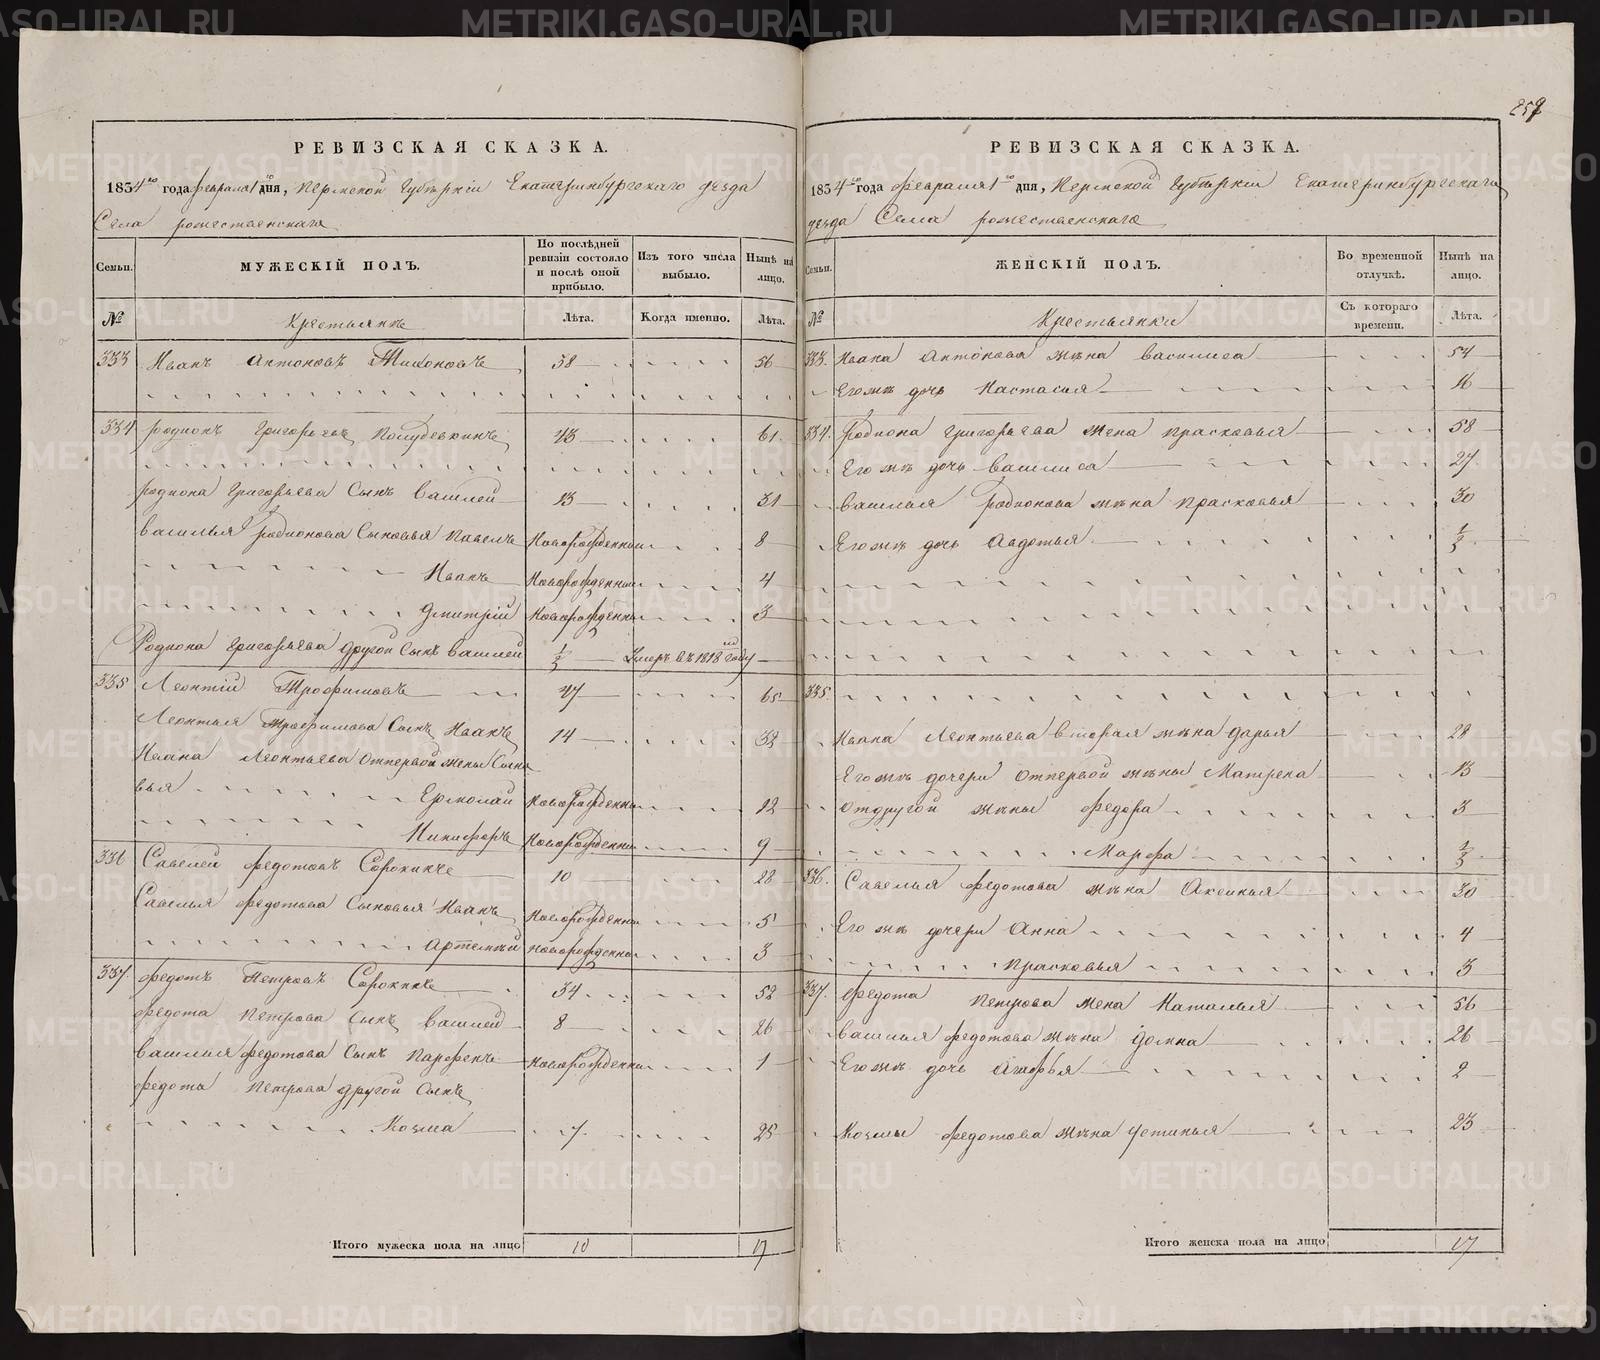 257
РЕВИЗСКАЯ СКАЗКА.
1834го года февраля 1го дня, Пермской Губѣрніи Екатеринбургскаго уезда
Села рожественскаго
Семьи. МУЖЕСКІЙ ПОЛЪ. По послѣдней ревизіи состояло и послѣ оной прибыло. Изъ того числа выбыло. Нынѣ на лицо.
№ Крестьянѣ Лѣта. Когда именно. Лѣта.
333 Иванъ Антоновъ 38 56
334 родионъ Григорьевъ 43 61
родиона Григорьева Сынъ василей 13 31
василья родионова Сыновья Павелъ Новорожденныи 8
Иванъ Новорожденныи 4
Дмитрій Новорожденны 3
Родиона Григорьева другой Сынъ василей 1/2 Умеръ въ 1818 году
335 Леонтій Трофимовъ 47 65
Леонтья Трофимова Сынъ Иванъ 14 32
Ивана Леонтьева отпервой жены Сыно
вья Ермолай Новорожденны 12
Никифоръ Новорожденны 9
336 Савелей федотовъ Сорокинъ 10 28
Савелья федотова Сыновья Иванъ Новорожденны 5
Артемѣй Новорожденны 3
337 федотъ Петровъ Сорокинъ 34 52
федота Петрова Сынъ василей 8 26
василия федотова Сынъ Парфенъ Новорожденны 1
федота Петрова другой Сынъ
Козма 7 25
Итого мужеска пола на лицо 10 17
РЕВИЗСКАЯ СКАЗКА.
1834го года февраля 1го дня, Пермской Губѣрніи Екатеринбургскаго
уезда Села рожественскаго
Семьи. ЖЕНСКІЙ ПОЛЪ. Во временной отлучкѣ. Нынѣ на лицо.
№ Крестьянки Съ котораго времени. Лѣта.
333. Ивана Антонова жѣна василиса 54
Егожѣ дочь Настасья 16
334. Родиона Григорьева жена прасковья 58
Его жѣ дочь василиса 27
василья родионова жѣна прасковья 30
Егожѣ дочь Авдотья 1/2
335.
Ивана Леонтьева вторая жѣна дарья 28
Егожѣ дочери отпервой жѣны Матрена 13
отдругой жѣны федора 3
Марфа 1/2
336. Савелья федотова жѣна Аксинья 30
Его жѣ дочери Анна 4
прасковья 3
337. федота Петрова жена Наталья 56
василья федотова жѣна домна 26
Егожѣ дочь Агафья 2
Козмы федотова жѣна устинья 23
Итого женска пола на лицо 17
METRIKI.GASO-URAL.RU